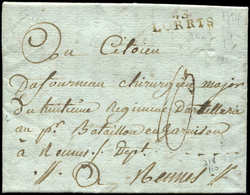 LORRIS
Au Citoien
Dufourneau chirurgien major
du huitieme Regiment Dartillerie
au pr. Bataillon en garnison
a Rennes Dept.
a Rennes